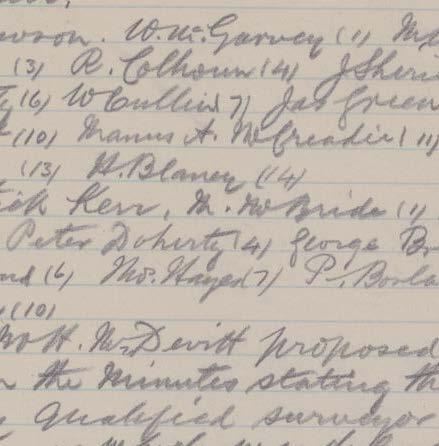 wson. W. Mc.Garvey (1)
(3) R. Colhoun (4) J Sheri
(6) W Cullin 7) Jas Green
(10) Manus A. McCreadie (11)
(13) H. Blaney (14)
ick Kerr, M. McBride (1)
Peter Doherty (4) George Br
nd (6) Thos. Hayes 7) P. Borla
(10)
H. McDevitt proposed
the minutes stating th
qualified surveyor